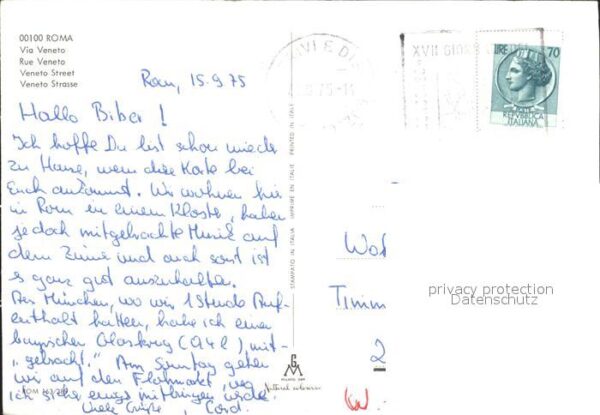 00100 ROMA
Via Veneto
Rue Veneto
Veneto Street
Veneto Strasse
Rom, 15.9.75
Hallo Biber!
Ich hoffe Du bist schon wieder
zu Hause, wenn diese Karte bei
Euch ankommt. Wir wohnen hier
in Rom in einem Kloster, haben
jedoch mitgebrachte Musik auf
dem Zimmer und auch sonst ist
es ganz gut auszuhalten.
Aus München, wo wir 1 Stunde Auf-
enthalt hatten, habe ich einen
bayrischen Glaskrug (0,4 l) mit-
"gebracht." Am Sonntag gehen
wir auf den Flohmarkt, wo
ich sicher einiges mitbringen werde.
Viele Grüße, Cord.
STAMPATO IN ITALIA IMPRIMÉ EN ITALIE PRINTED IN ITALY
MILANO
ROM
XVII GIOR
LIRE 70
REPUBBLICA
ITALIANA
Timm
2
privacy protection
Datenschutz